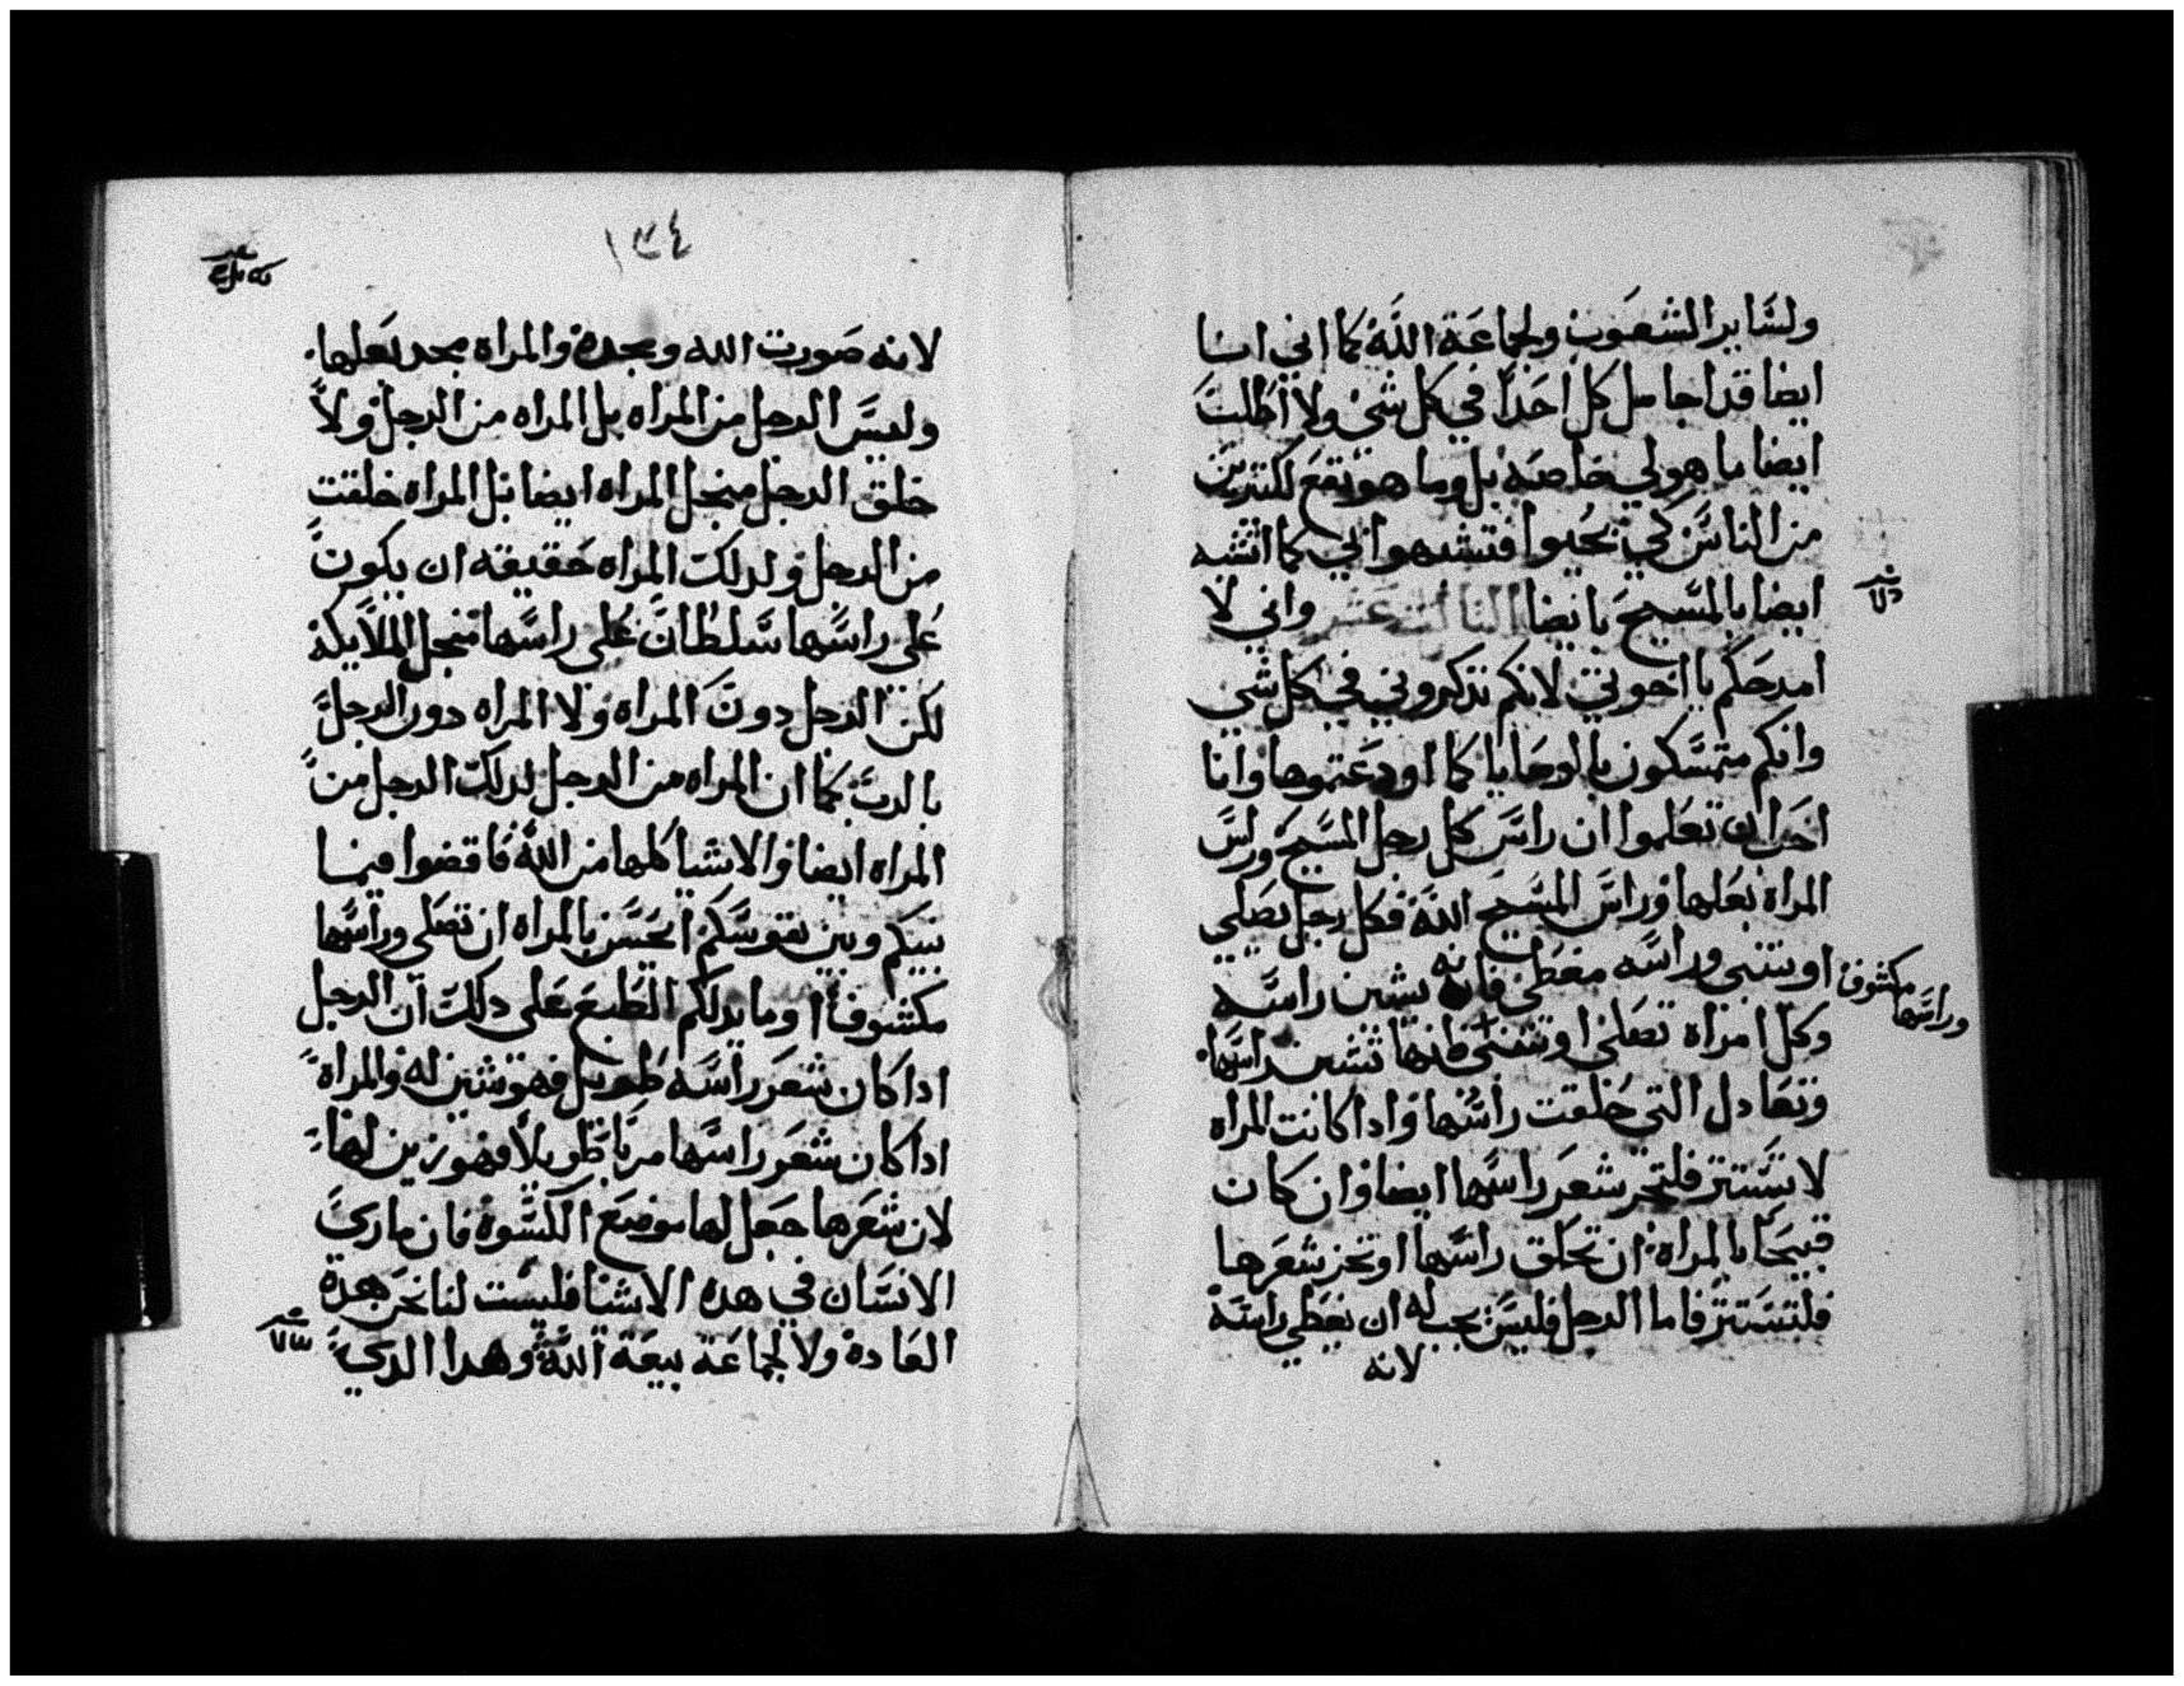 ولساير الشعوب ولجماعة الله كما اني انا
ايضا قد اجامل كل احدا في كل شي ولا اطلب
ايضا ما هو لي خاصه بل وما هو نفع لكثيرين
من الناس كي يحيوا فتشبهوا بي كما اتشبه
ايضا بالمسيح يا ايضا الثالث عشر واني لا
امدحكم يا اخوتي لانكم تذكروني في كل شي
وانكم متمسكون بالوصايا كما اودعتموها وانا
احب ان تعلموا ان راس كل رجل المسيح وراس
المراة بعلها وراس المسيح الله فكل رجل يصلي
او يتنبى وراسه مغطى فانه يشين راسه
وكل امراة تصلي او تتنبى فانها تشين راسها
وراسها مكشوف
وتعادل التي حلقت راسها واذا كانت المراه
لا تستتر فلتجز شعر راسها ايضا وان كان
قبيحا بالمراة ان تحلق راسها او تجز شعرها
فلتستتر فاما الرجل فليس يجب له ان يغطي راسه
لانه
١٣٤
لانه صورت الله ومجده والمراة مجد بعلها
وليس الرجل من المراه بل المراه من الرجل ولا
خلق الرجل منجل المراه ايضا بل المراه خلقت
من الرجل ولدلك المراه حقيقه ان يكون
على راسها سلطان على راسها منجل الملايكة
لكن الرجل دون المراه ولا المراه دون الرجل
بالرب كما ان المراه من الرجل لدلك الرجل من
المراه ايضا والاشيا كلها من الله فاقضوا فيما
بينكم وبين نفوسكم ايحسن بالمراه ان تصلي وراسها
مكشوفا او ما يدلكم الطبع على دلك ان الرجل
ادا كان شعر راسه طويل فهو شين له والمراة
ادا كان شعر راسها مربا طويلا فهو زين لها
لان شعرها جعل لها موضع الكسوة فان مارى
الانسان في هده الاشيا فليست لنا نحن هده
العادة ولا لجماعة بيعة الله وهدا الدي